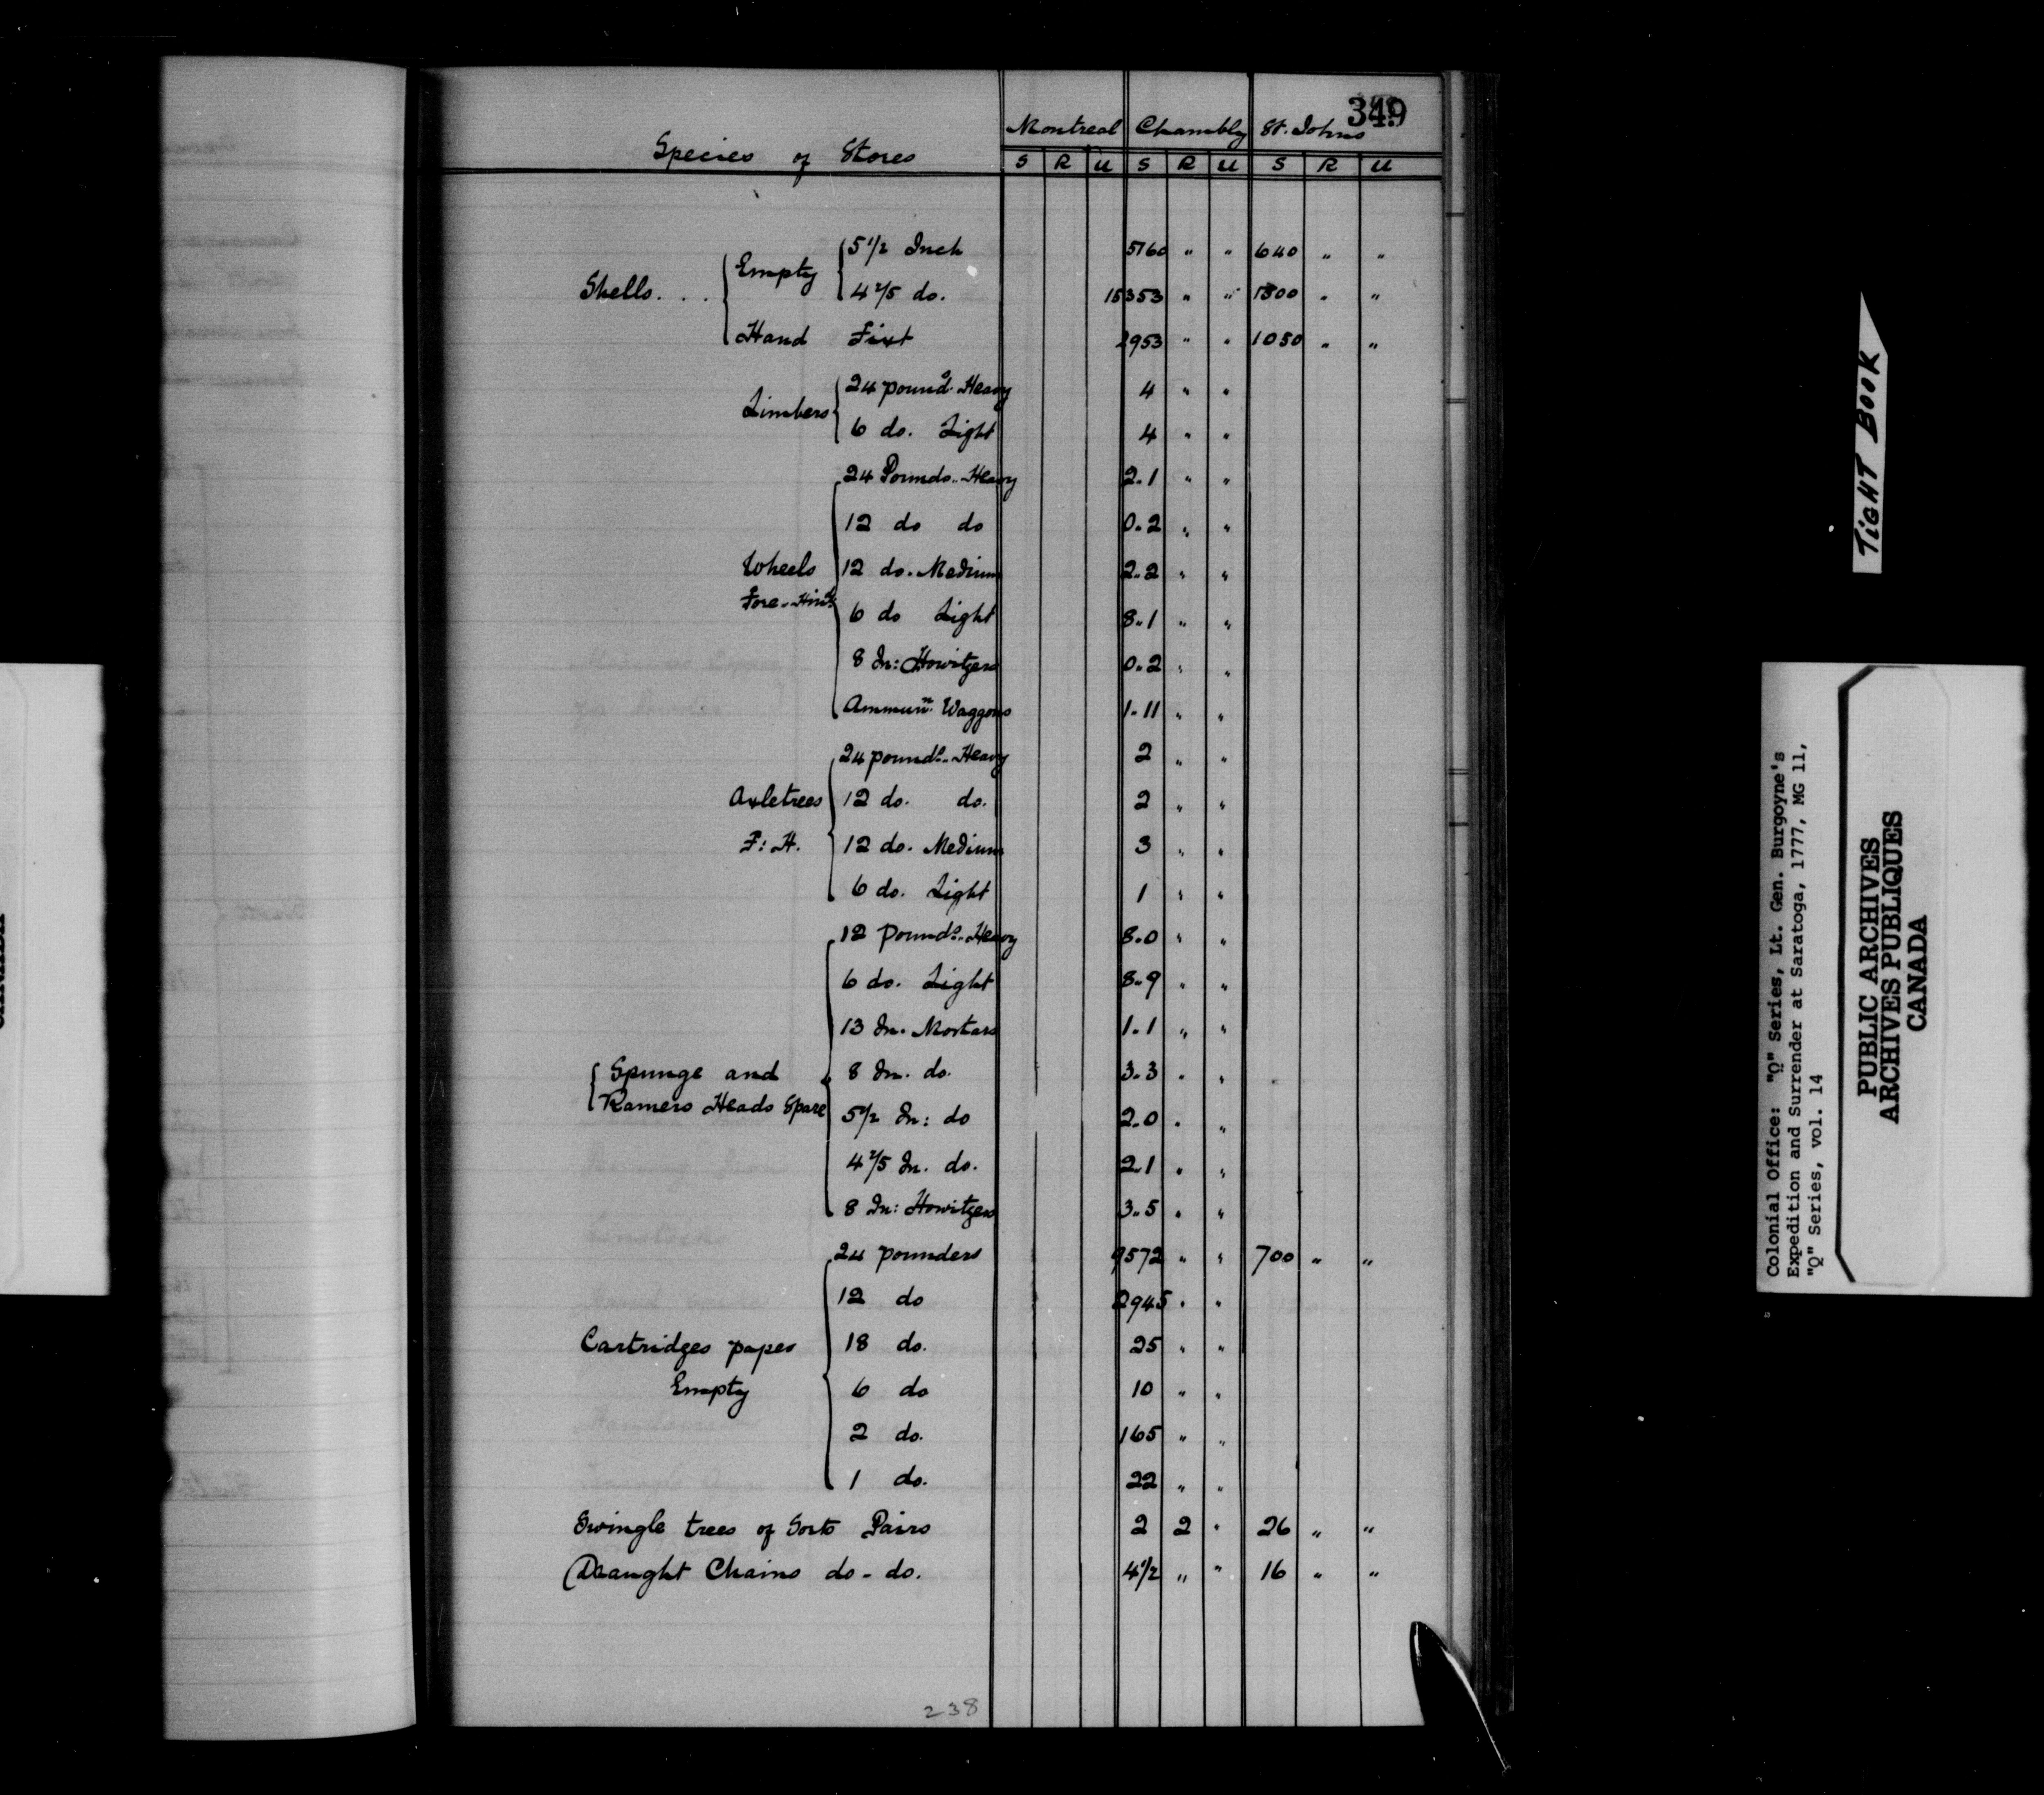 349
Montreal Chambly St. Johns
Species of Stores S R U S R U S R U
5 1/2 Inch 5760 " " 640 " "
Shells. . . Empty 4 2/5 do. 15353 " " 1500 " "
Hand Fixt 2953 " " 1050 " "
24 pound.s Heavy 4 " "
Limbers
6 do. Light 4 " "
24 Pounds.. Heavy 2.1 " "
12 do do 0.2 " "
Wheels 12 do. Medium 2.2 " "
Fore.. Hind
6 do Light 8.1 " "
8 In: Howitzers 0.2 " "
Ammun.n Waggons 1.11 " "
24 pound.s.. Heavy 2 " "
Axletrees 12 do. do. 2 " "
F: H. 12 do. Medium 3 " "
6 do. Light 1 " "
12 pound.s.. Heavy 8.0 " "
6 do. Light 8.9 " "
13 In. Mortars 1.1 " "
Spunge and 8 In. do. 3.3 " "
Ramers Heads Spare
5 1/2 In: do 2.0 " "
4 2/5 In. do. 2.1 " "
8 In: Howitzers 3.5 " "
24 pounders 9572 " " 700 " "
12 do 2945 " "
Cartridges paper 18 do. 25 " "
Empty 6 do 10 " "
2 do. 165 " "
1 do. 22 " "
Swingle trees of Sorts Pairs 2 2 " 26 " "
Draught Chains do - do. 4 1/2 " " 16 " "
238
TIGHT BOOK
Colonial Office: "Q" Series, Lt. Gen. Burgoyne's
Expedition and Surrender at Saratoga, 1777, MG 11,
"Q" Series, vol. 14
PUBLIC ARCHIVES
ARCHIVES PUBLIQUES
CANADA